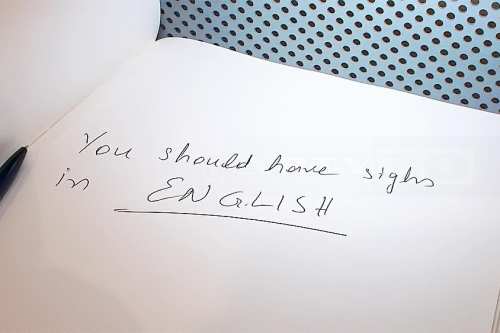 You should have signs
in ENGLISH